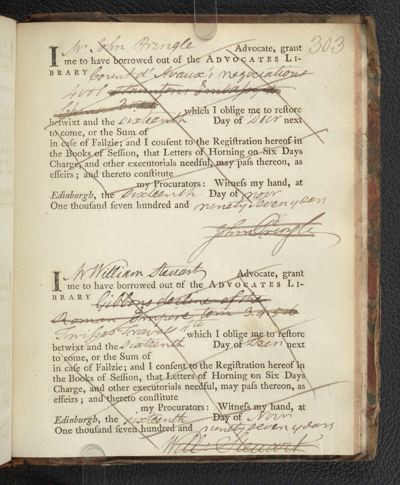 303
I Mr John Pringle Advocate, grant
me to have borrowed out of the ADVOCATES LI-
BRARY Count d'Avaux's negociations
4 vol
which I oblige me to reſtore
betwixt and the sixteenth Day of Decr next
to come, or the Sum of
in caſe of Failzie; and I conſent to the Regiſtration hereof in
the Books of Seſſion, that Letters of Horning on Six Days
Charge, and other executorials needful, may paſs thereon, as
effeirs; and thereto conſtitute
my Procurators: Witneſs my hand, at
Edinburgh, the sixteenth Day of Novr
One thouſand ſeven hundred and ninety seven years
John Pringle
I Mr William Steuart Advocate, grant
me to have borrowed out of the ADVOCATES LI-
BRARY Gibbons decline of the
Roman Empire tom 3.4.5.6
Travels 4to which I oblige me to reſtore
betwixt and the sixteenth Day of Decr next
to come, or the Sum of
in caſe of Failzie; and I conſent to the Regiſtration hereof in
the Books of Seſſion, that Letters of Horning on Six Days
Charge, and other executorials needful, may paſs thereon, as
effeirs; and thereto conſtitute
my Procurators: Witneſs my hand, at
Edinburgh, the sixteenth Day of Novr
One thouſand ſeven hundred and ninety seven years
Will: Steuart